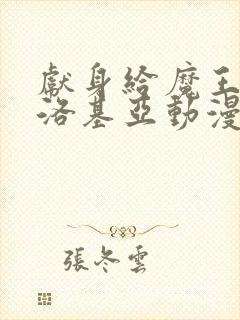 獻身給魔王
洛基亞動漫
張冬雲